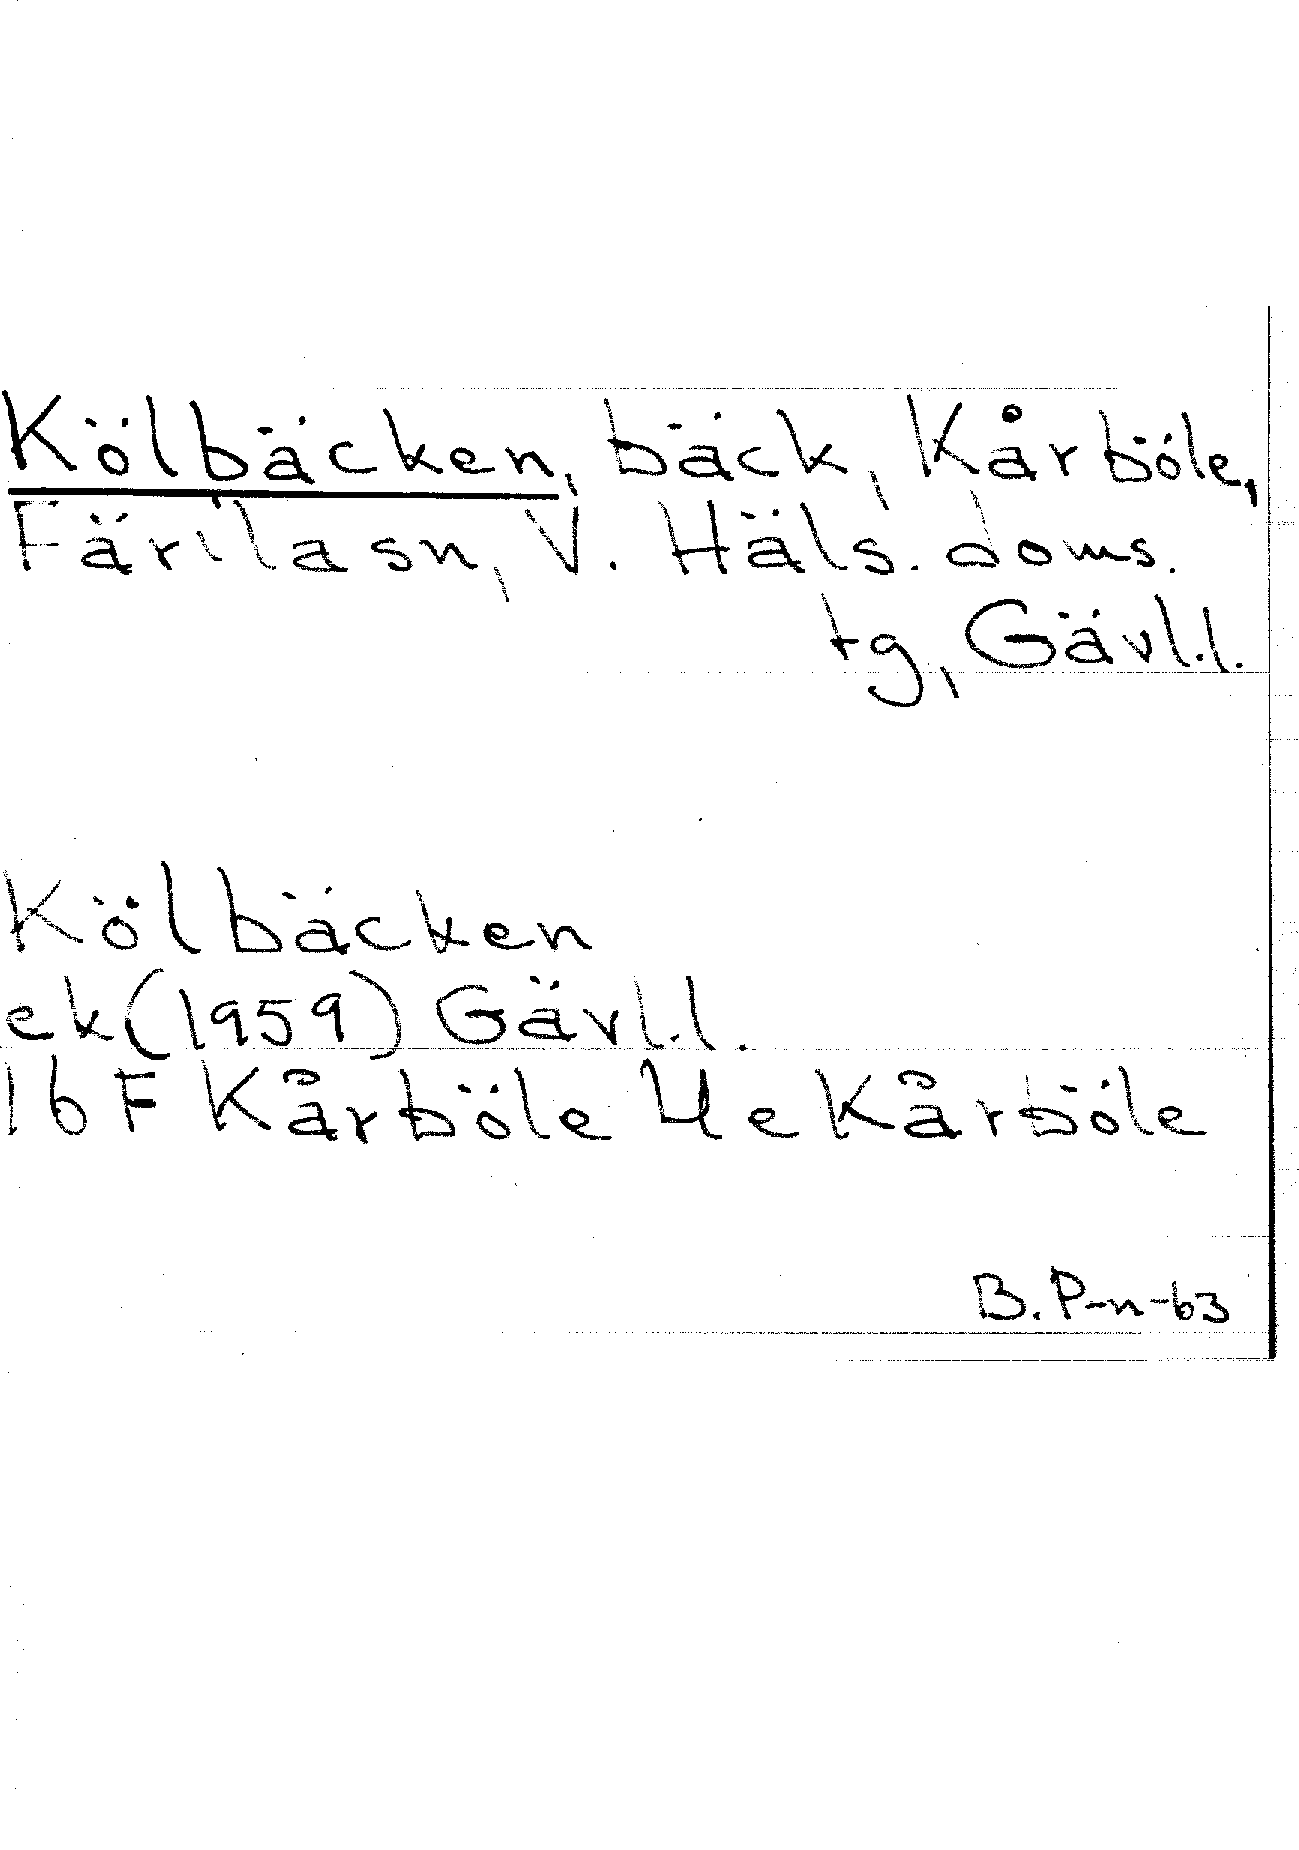 Kölbäcken, bäck, Kårböle,
Färila sn, V. Häls. doms.
tg, Gävl.l.
Kölbäcken
ek (1959) Gävl.l.
16 F Kårböle 4 e Kårböle
B. P-n-63